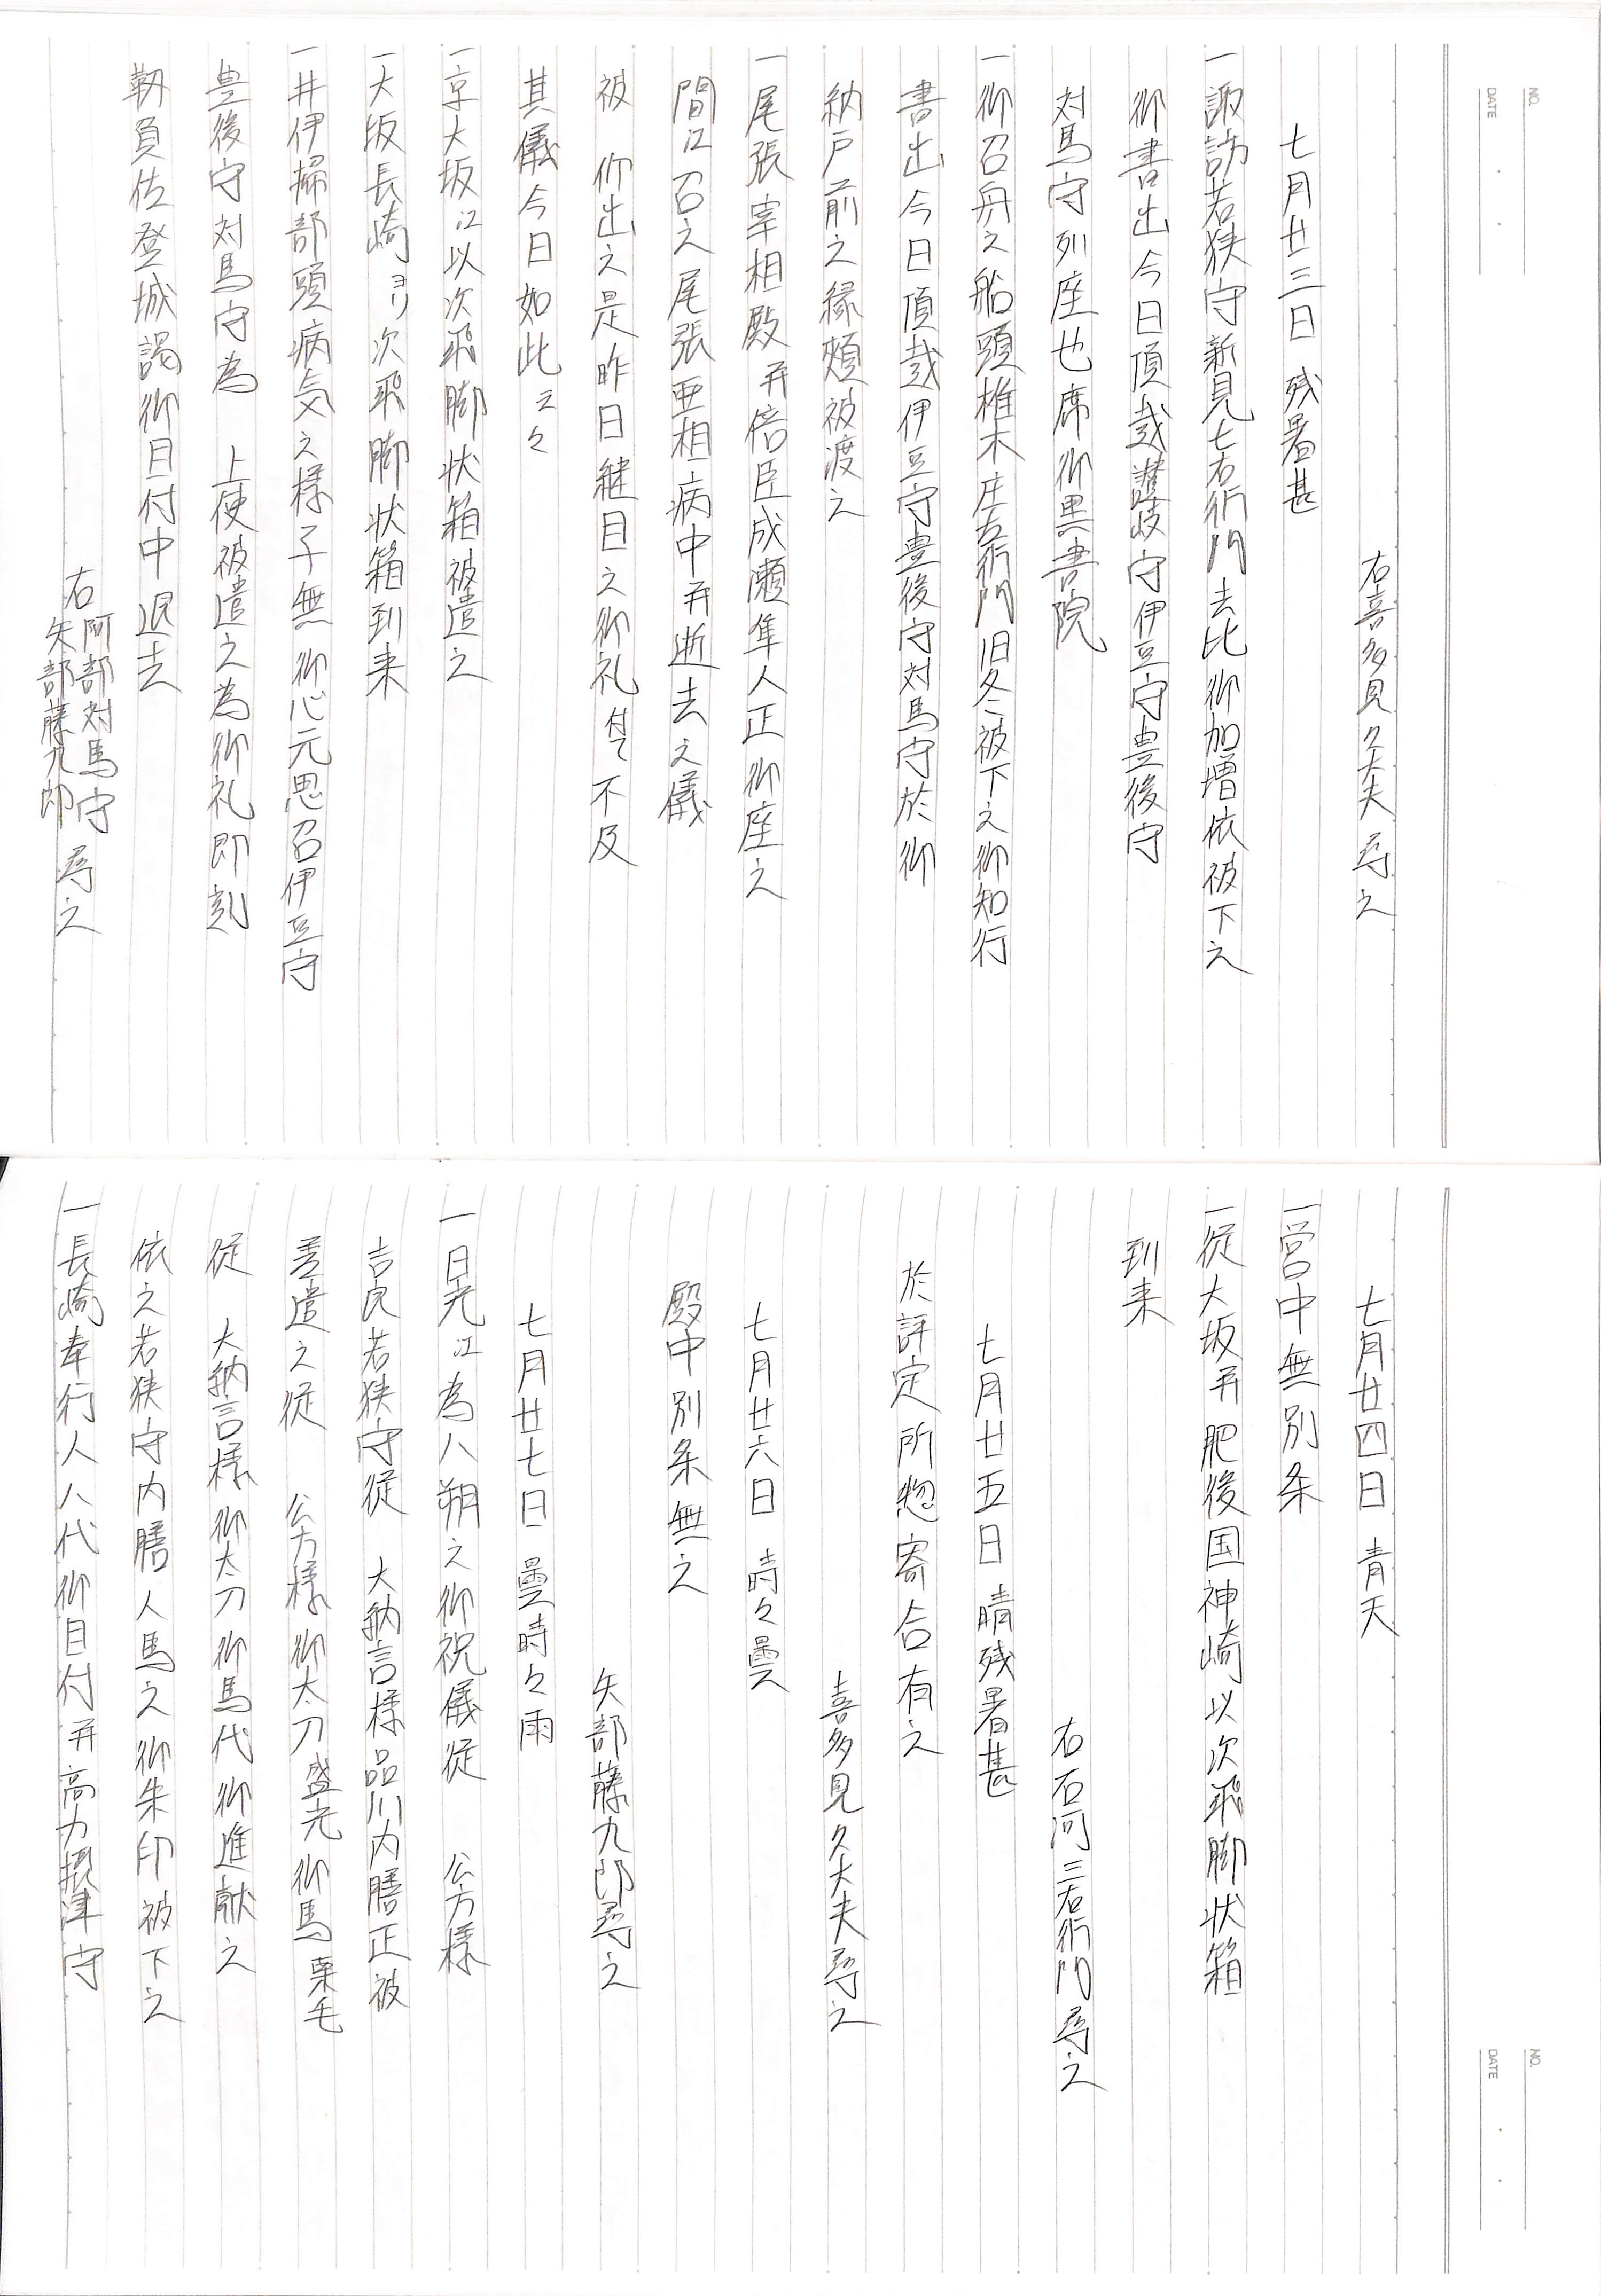 NO.
DATE
右喜多見久太夫尋之
七月廿三日 残暑甚
一諏訪若狭守新見七右衛門去比御加増依被下之
御書出今日頂戴讃岐守伊豆守豊後守
対馬守列座也席御黒書院
一御召舟之船頭椎木庄右衛門旧冬被下之御知行
書出今日頂戴伊豆守豊後守対馬守於御
納戸前之縁頬被渡之
一尾張宰相殿并倍臣成瀬隼人正御座之
間江召之尾張亜相病中并逝去之儀
被 仰出之是昨日継目之御礼ニ付而不及
其儀今日如此云々
一京大坂江以次飛脚状箱被遣之
一大坂長崎ヨリ次飛脚状箱到来
一井伊掃部頭病気之様子無御心元思召伊豆守
豊後守対馬守為 上使被遣之為御礼即刻
靱負佐登城謁御目付中退去
右 阿部対馬守 矢部藤九郎 尋之
NO.
DATE
七月廿四日 青天
一営中無別条
一従大坂并肥後国神崎以次飛脚状箱
到来
右石河三右衛門尋之
七月廿五日 晴残暑甚
於評定所惣寄合有之
喜多見久太夫尋之
七月廿六日 時々曇
殿中別条無之
矢部藤九郎尋之
七月廿七日 曇時々雨
一日光江為八朔之御祝儀従 公方様
吉良若狭守従 大納言様品川内膳正被
差遣之従 公方様御太刀盛光御馬栗毛
従 大納言様御太刀御馬代御進献之
依之若狭守内膳人馬之御朱印被下之
一長崎奉行人八代御目付并高力摂津守